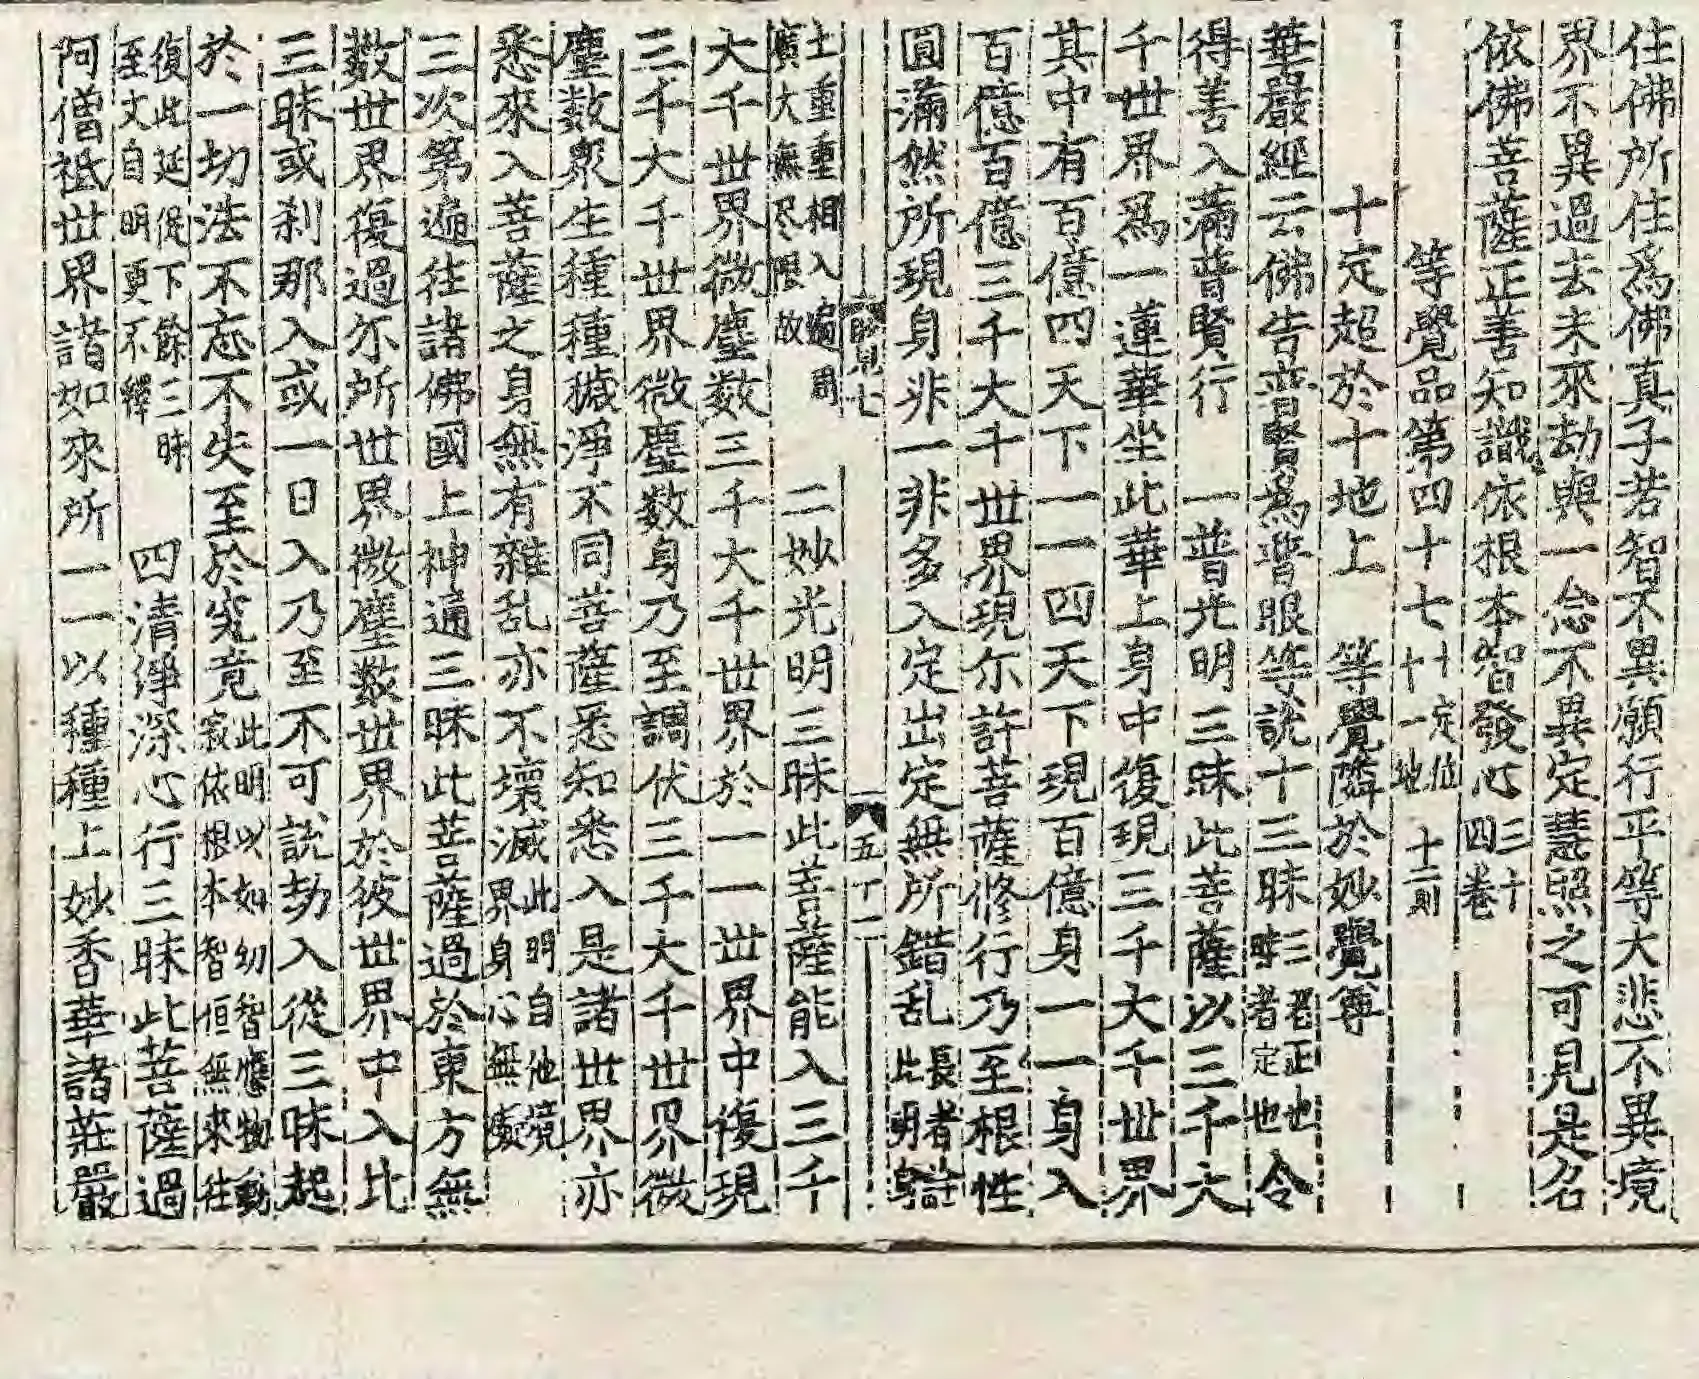 住佛所住爲佛真子若智不異願行平等大悲不異境
界不異過去未來劫與一念不異定慧照之可見是名
依佛菩薩正善知識依根本智發心三十四卷
等覺品第四十七十定位十一地十二則
十定超於十地上　等覺隣於妙覺尊
華嚴經云佛告普賢爲普眼等說十三昧三者正也昧者定也令
得善入滿普賢行　一普光明三昧此菩薩以三千大
千世界爲一蓮華坐此華上身中復現三千大千世界
其中有百億四天下一一四天下現百億身一一身入
百億百億三千大千世界現尓許菩薩修行乃至根性
圓滿然所現身非一非多入定出定無所錯乱長者論此明身
五　丁一
土重重相入徧周廣大無尽限故　二妙光明三昧此菩薩能入三千
大千世界微塵数三千大千世界於一一世界中復現
三千大千世界微塵数身乃至調伏三千大千世界微
塵数衆生種種穢淨不同菩薩悉知悉入是諸世界亦
悉來入菩薩之身無有雜乱亦不壞滅此明自他境界身心無礙
三次第遍往諸佛國上神通三昧此菩薩過於東方無
数世界復過尓所世界微塵数世界於彼世界中入此
三昧或刹那入或一日入乃至不可說劫入從三昧起
於一切法不忘不失至於究竟此明以如幻智應物動寂依根本智恒無來往
復此延促下餘三昧至文自明更不繹　四清淨深心行三昧此菩薩過
阿僧祇世界諸如來所一一以種種上妙香華諸莊嚴